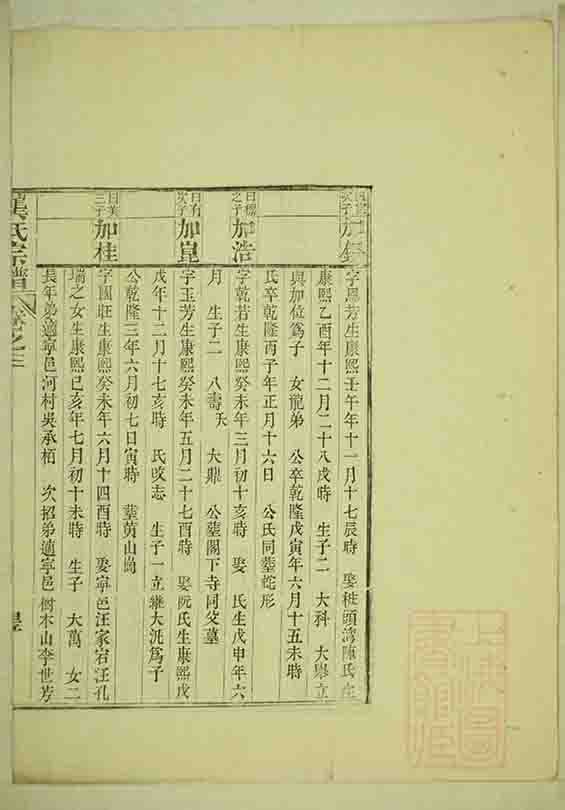 次子
加
字恩芳生康熙壬午年十一月十七辰時 娶 頭湾陳氏生
康熙乙酉年十二月二十八戌時 生子二 大科 大舉立
與加位爲子 女龍弟 公卒乾隆戊寅年六月十五未時
氏卒乾隆丙子年正月十六日 公氏同塟蛇形
之子
加浩
字乾若生康熙癸未年三月初十亥時 娶 氏生戊申年六
月 生子二 八壽夭 大鼎 公塟閣下寺同父墓
日有次子
加崑
字玉芳生康熙癸未年五月二十七酉時 娶阮氏生康熙戊
戌年十二月十七亥時 氏改志 生子一立繼大 爲子
公乾隆三年六月初七日寅時 塟黃山崗
日美三子
加桂
字國旺生康熙癸未年六月十四酉時 娶寧邑汪家宕汪孔
瑞之女生康熙己亥年七月初十未時 生子 大萬 女二
長年弟適寧邑河村吳承栢 次招弟適寧邑樹木山李世芳
氏宗譜 卷之